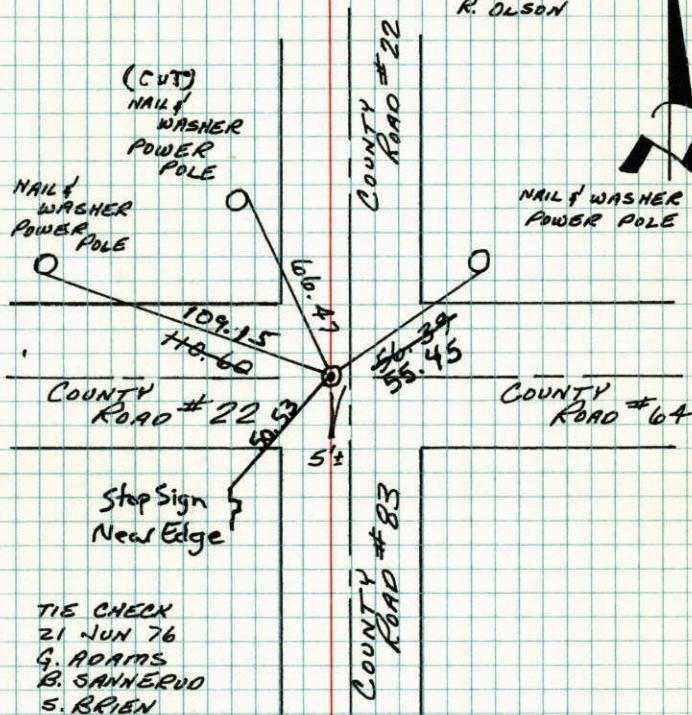 R. OLSON
COUNTY
ROAD #22
(CUT)
NAIL &
WASHER
POWER
POLE
NAIL &
WASHER
POWER
POLE
N
NAIL & WASHER
POWER POLE
66.47
109.15
110.60
56.39
55.45
COUNTY
ROAD #22
COUNTY
ROAD #64
50.53
5'±
Stop Sign
Near Edge
COUNTY
ROAD #83
TIE CHECK
21 JUN 76
G. ADAMS
B. SANNERUD
S. BRIEN